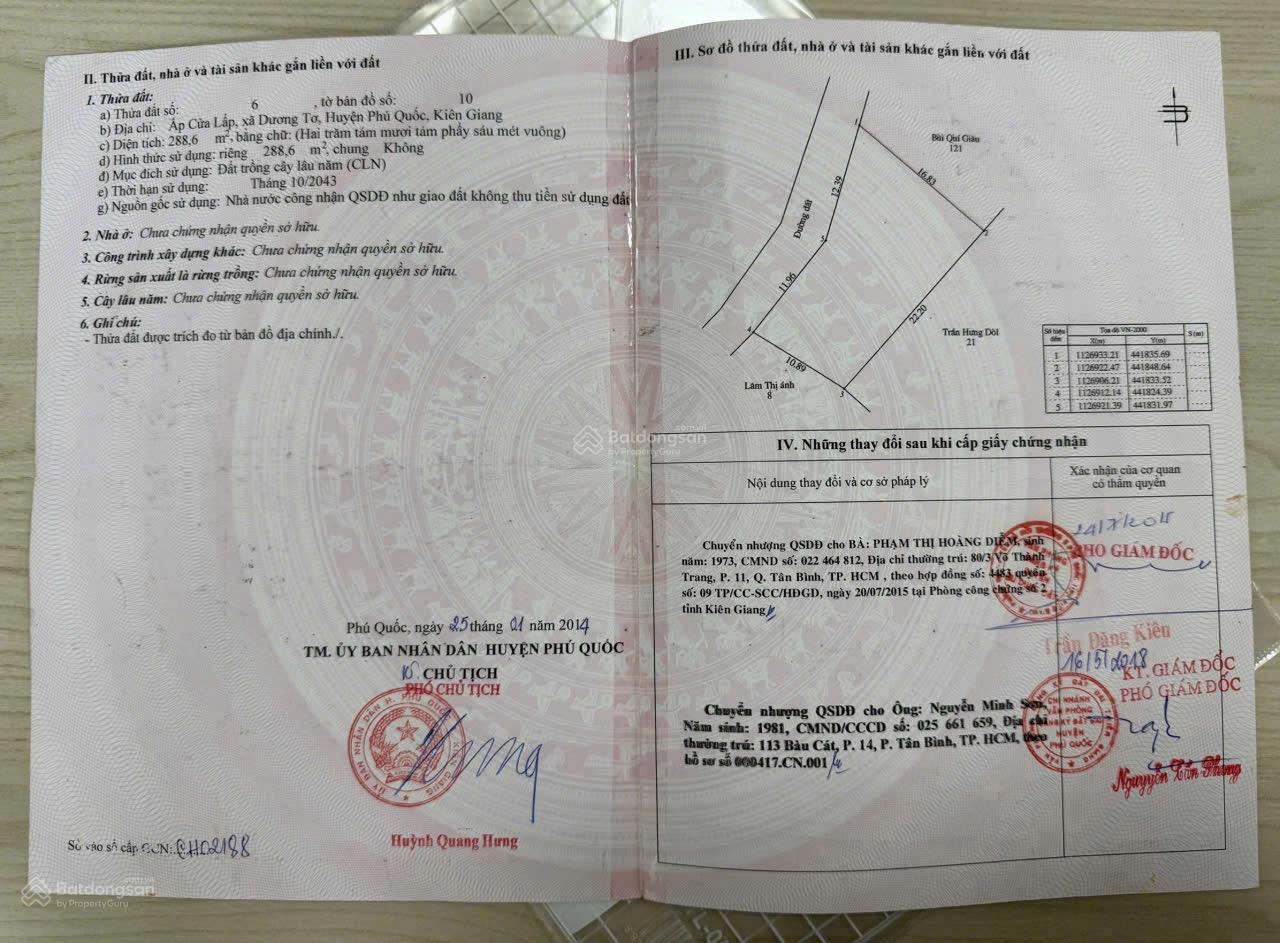 II. Thửa đất, nhà ở và tài sản khác gắn liền với đất
1. Thửa đất:
a) Thửa đất số: 6 , tờ bản đồ số: 10
b) Địa chỉ: Ấp Cửa Lấp, xã Dương Tơ, Huyện Phú Quốc, Kiên Giang
c) Diện tích: 288,6 m², bằng chữ: (Hai trăm tám mươi tám phẩy sáu mét vuông)
d) Hình thức sử dụng: riêng 288,6 m², chung Không
đ) Mục đích sử dụng: Đất trồng cây lâu năm (CLN)
e) Thời hạn sử dụng: Tháng 10/2043
g) Nguồn gốc sử dụng: Nhà nước công nhận QSDĐ như giao đất không thu tiền sử dụng đất
2. Nhà ở: Chưa chứng nhận quyền sở hữu.
3. Công trình xây dựng khác: Chưa chứng nhận quyền sở hữu.
4. Rừng sản xuất là rừng trồng: Chưa chứng nhận quyền sở hữu.
5. Cây lâu năm: Chưa chứng nhận quyền sở hữu.
6. Ghi chú:
- Thửa đất được trích đo từ bản đồ địa chính./.
Phú Quốc, ngày 25 tháng 01 năm 2014
TM. ỦY BAN NHÂN DÂN HUYỆN PHÚ QUỐC
KT. CHỦ TỊCH
PHÓ CHỦ TỊCH
ỦY BAN NHÂN DÂN H. PHÚ QUỐC
KIÊN GIANG
Huỳnh Quang Hưng
Số vào sổ cấp GCN: CH02188
III. Sơ đồ thửa đất, nhà ở và tài sản khác gắn liền với đất
1
Bùi Quí Giàu
121
16.83
12.39
Đường đất
2
5
11.96
22.20
Trần Hưng Dôl
21
4
10.89
Lâm Thị ánh
8
3
Số hiệu điểm Tọa độ VN-2000 S(m)
X(m) Y(m)
1 1126933.21 441835.69
2 1126922.47 441848.64
3 1126906.21 441833.52
4 1126912.14 441824.39
5 1126921.39 441831.97
IV. Những thay đổi sau khi cấp giấy chứng nhận
Nội dung thay đổi và cơ sở pháp lý
Xác nhận của cơ quan
có thẩm quyền
Chuyển nhượng QSDĐ cho BÀ: PHẠM THỊ HOÀNG DIỄM, sinh
năm: 1973, CMND số: 022 464 812, Địa chỉ thường trú: 80/3 Võ Thành
Trang, P. 11, Q. Tân Bình, TP. HCM , theo hợp đồng số: 4483 quyển
số: 09 TP/CC-SCC/HĐGD, ngày 20/07/2015 tại Phòng công chứng số 2
tỉnh Kiên Giang
PHÓ GIÁM ĐỐC
Trần Đăng Kiêu
16/5/2018
KT. GIÁM ĐỐC
PHÓ GIÁM ĐỐC
Chuyển nhượng QSDĐ cho Ông: Nguyễn Minh Sơn,
Năm sinh: 1981, CMND/CCCD số: 025 661 659, Địa chỉ
thường trú: 113 Bàu Cát, P. 14, P. Tân Bình, TP. HCM, theo
hồ sơ số 000417.CN.001
CHI NHÁNH
VĂN PHÒNG
ĐĂNG KÝ ĐẤT ĐAI
HUYỆN
PHÚ QUỐC
Batdongsan.com.vn
by PropertyGuru
Batdongsan.com.vn
by PropertyGuru